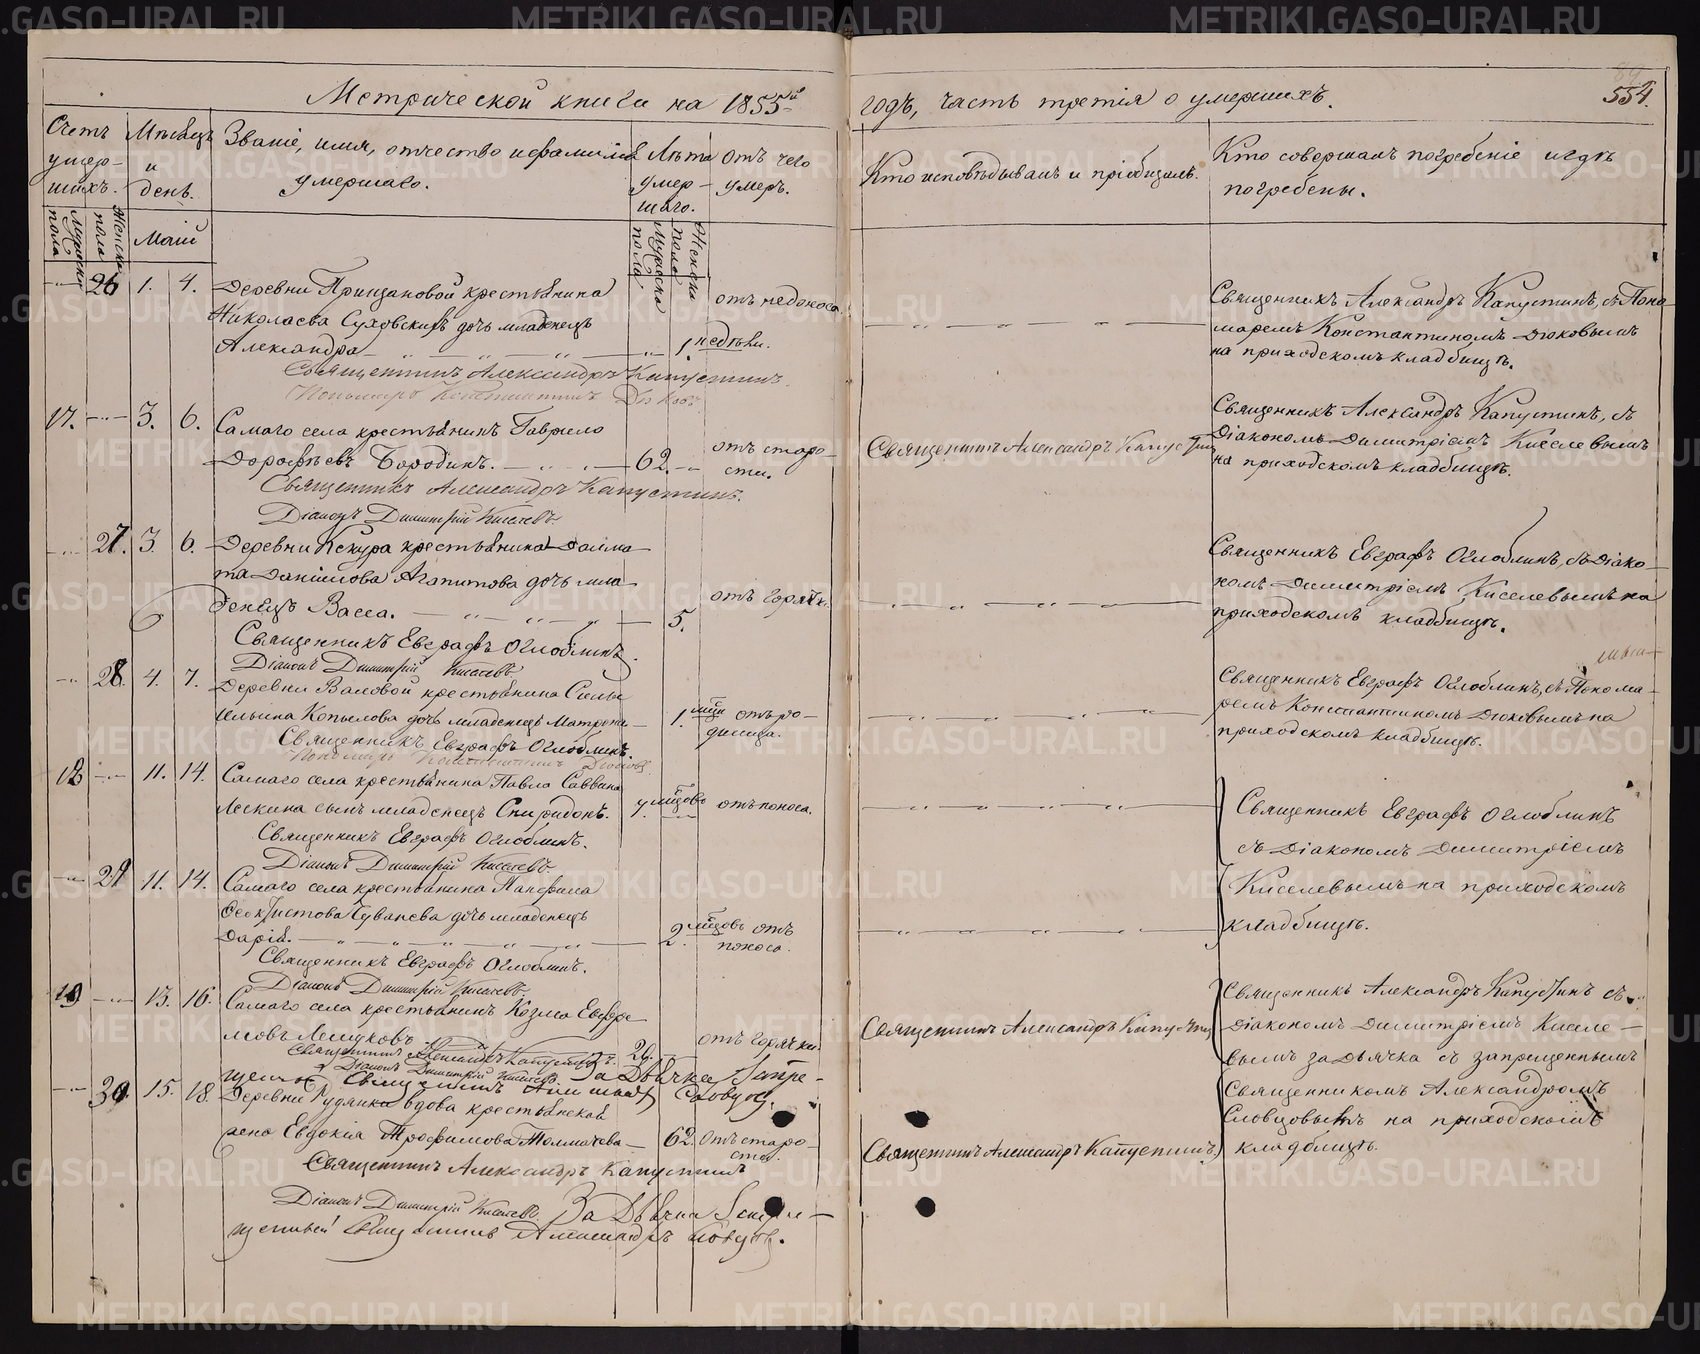 METRIKI.GASO-URAL.RU
Метрической книги на 1855й
годъ, часть третія о умершихъ.
554.
Счетъ умер-шихъ.
Мѣсяцъ и день.
Званіе, имя, отчество и фамилія умершаго.
Лѣта умер-шаго.
Отъ чего умеръ.
Кто исповѣдывалъ и пріобщилъ.
Кто совершалъ погребеніе и гдѣ погребены.
Мужеска пола
Женска пола
Май
Мужеска пола
Женска пола
26 1. 4. Деревни крестьянина
Николаева Суховскихъ дочь младенецъ
Александра 1. недѣли. отъ недоноса.
Священникъ Александръ Капустинъ, съ Поно-
маремъ Константиномъ Дюковымъ
на приходскомъ кладбищѣ.
Священникъ Александръ Капустинъ.
Пономарь Константинъ Дюковъ
17. 3. 6. Самаго села крестьянинъ Гаврило
Дорофѣевъ Бородинъ. 62. отъ старо-
сти.
Священникъ Александръ Капустинъ
Священникъ Александръ Капустинъ, съ
Діакономъ Димитріемъ Киселевымъ
на приходскомъ кладбищѣ.
Священникъ Александръ Капустинъ.
Діаконъ Димитрій Киселевъ
27. 3. 6. Деревни Кекура крестьянина Далма-
та Даніилова Агапитова дочь мла-
денецъ Васса. 5. отъ горячк.
Священникъ Евграфъ Оглоблинъ, съ Діако-
номъ Димитріемъ Киселевымъ на
приходскомъ кладбищѣ.
Священникъ Евграфъ Оглоблинъ.
Діаконъ Димитрій Киселевъ
28. 4. 7. Деревни Валовой крестьянина Силы
Ильина Копылова дочь младенецъ Матрона 1. мѣц отъ ро-
димца.
Священникъ Евграфъ Оглоблинъ, съ Понома-
ремъ Константиномъ Дюковымъ на
приходскомъ кладбищѣ.
Священникъ Евграфъ Оглоблинъ.
Пономарь Константинъ Дюковъ
18 11. 14. Самаго села крестьянина Павла Саввина
Лескина сынъ младенецъ Спиридонъ. 7. мѣцовъ отъ поноса.
Священникъ Евграфъ Оглоблинъ.
Діаконъ Димитрій Киселевъ
Священникъ Евграфъ Оглоблинъ
съ Діакономъ Димитріемъ
Киселевымъ на приходскомъ
кладбищѣ.
29 11. 14. Самаго села крестьянина Панфила
Чуванева дочь младенецъ
Дарія. 2. мѣцовъ отъ
поноса.
Священникъ Евграфъ Оглоблинъ.
Діаконъ Димитрій Киселевъ.
19 13. 16. Самаго села крестьянинъ Козма Евфре-
мовъ Лешуковъ. 29. отъ горячки.
Священникъ Александръ Капустинъ
Священникъ Александръ Капустинъ съ
Діакономъ Димитріемъ Киселе-
вымъ за дьячка съ запрещеннымъ
Священникомъ Александромъ
Словцовымъ на приходскомъ
кладбищѣ.
Священникъ Александръ Капустинъ.
Діаконъ Димитрій Киселевъ. За Дьячка Запре-
щенный Священникъ Александръ Словцовъ.
30. 15. 18. Деревни Рудянки вдова крестьянская
жена Евдокія Трофимова Толмачева 62. Отъ старо-
сти.
Священникъ Александръ Капустинъ
Священникъ Александръ Капустинъ
Діаконъ Димитрій Киселевъ. За Дьячка Запре-
щенный Священникъ Александръ Словцовъ.